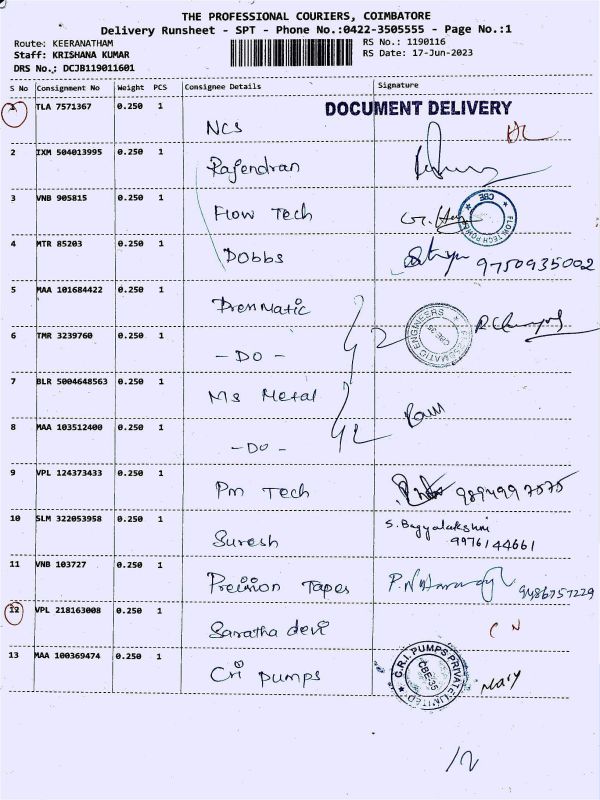 THE PROFESSIONAL COURIERS, COIMBATORE
Delivery Runsheet - SPT - Phone No.:0422-3505555 - Page No.:1
Route: KEERANATHAM
RS No.: 1190116
Staff: KRISHANA KUMAR
RS Date: 17-Jun-2023
DRS No.: DCJB119011601
S No Consignment No Weight PCS Consignee Details Signature
1 TLA 7571367 0.250 1 NCS
DOCUMENT DELIVERY
2 IXM 504013995 0.250 1 Rajendran
3 VNB 905815 0.250 1 Flow Tech
FLOW TECH POWER CBE
4 MTR 85203 0.250 1 DOBBS 9750935002
5 MAA 101684422 0.250 1 Prenmatic
ENGINEERS CBE
6 TMR 3239760 0.250 1 - DO - 2
7 BLR 5004648563 0.250 1 Ms Metal
Ram
8 MAA 103512400 0.250 1 - DO - 2
9 VPL 124373433 0.250 1 Pm Tech 9894997575
10 SLM 322053958 0.250 1 Suresh S. Bagyalakshmi
9976144661
11 VNB 103727 0.250 1 Preiion Tapes 9486757229
12 VPL 218163008 0.250 1 Saratha devi C N
13 MAA 100369474 0.250 1 Cri pumps
C.R.I. PUMPS PRIVATE LIMITED CBE-35
Mary
12